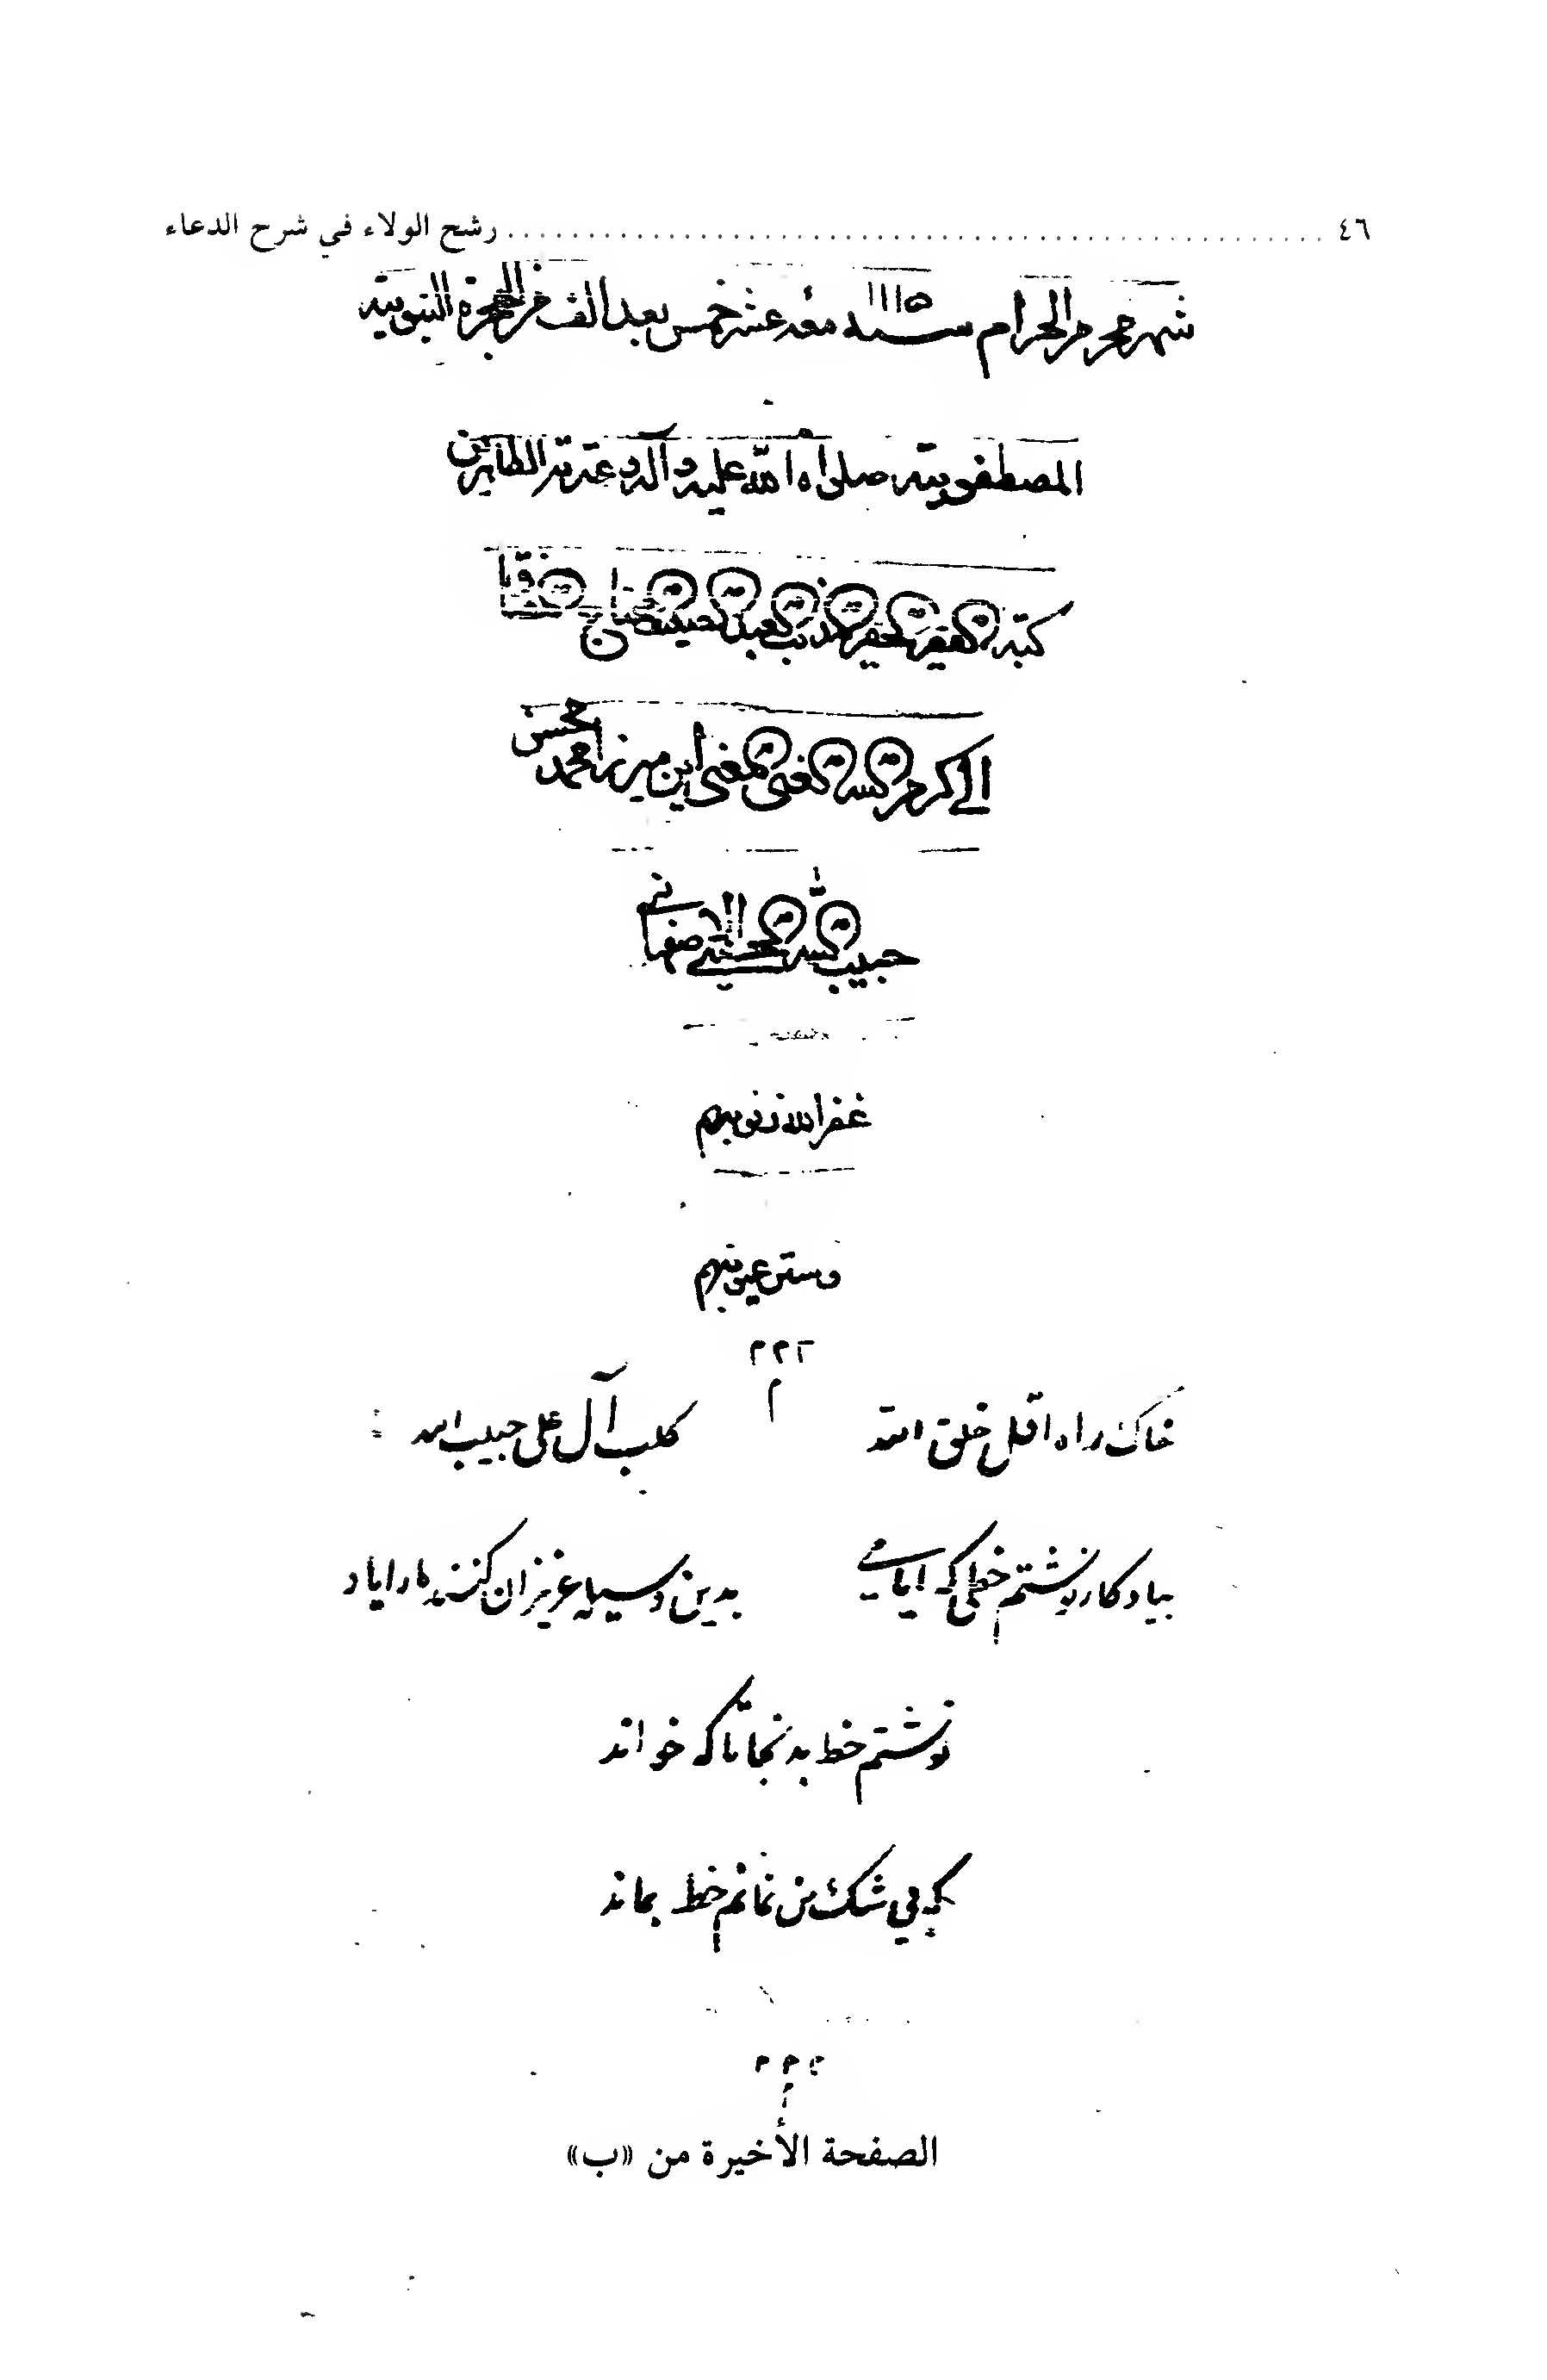 ٤٦ ........ رشح الولاء في شرح الدعاء
شهر محرم الحرام سنه ١١١٥ مئه عشر خمس بعد الف من الهجرة النبويته
المصطفويته صلى الله عليه وآله وعترته الطاهرين
كتبه الفقير الحقير المذنب العبد
الى كرم الله الغني المغني ابن ميرزا محمد محسن
حبيب الله الحسيني الاصفهاني
غفر الله ذنوبهم
وستر عيوبهم
خاك راه اقل خلق الله كلب آل على حبيب الله
بيادكار نوشتم خطى كه ايامي بدين وسيله عزيزان كنند مارا ياد
نوشتم خط بد نجا تا كه خواند
كه بي شك من نمانم خط بماند
الصفحة الأخيرة من «ب»